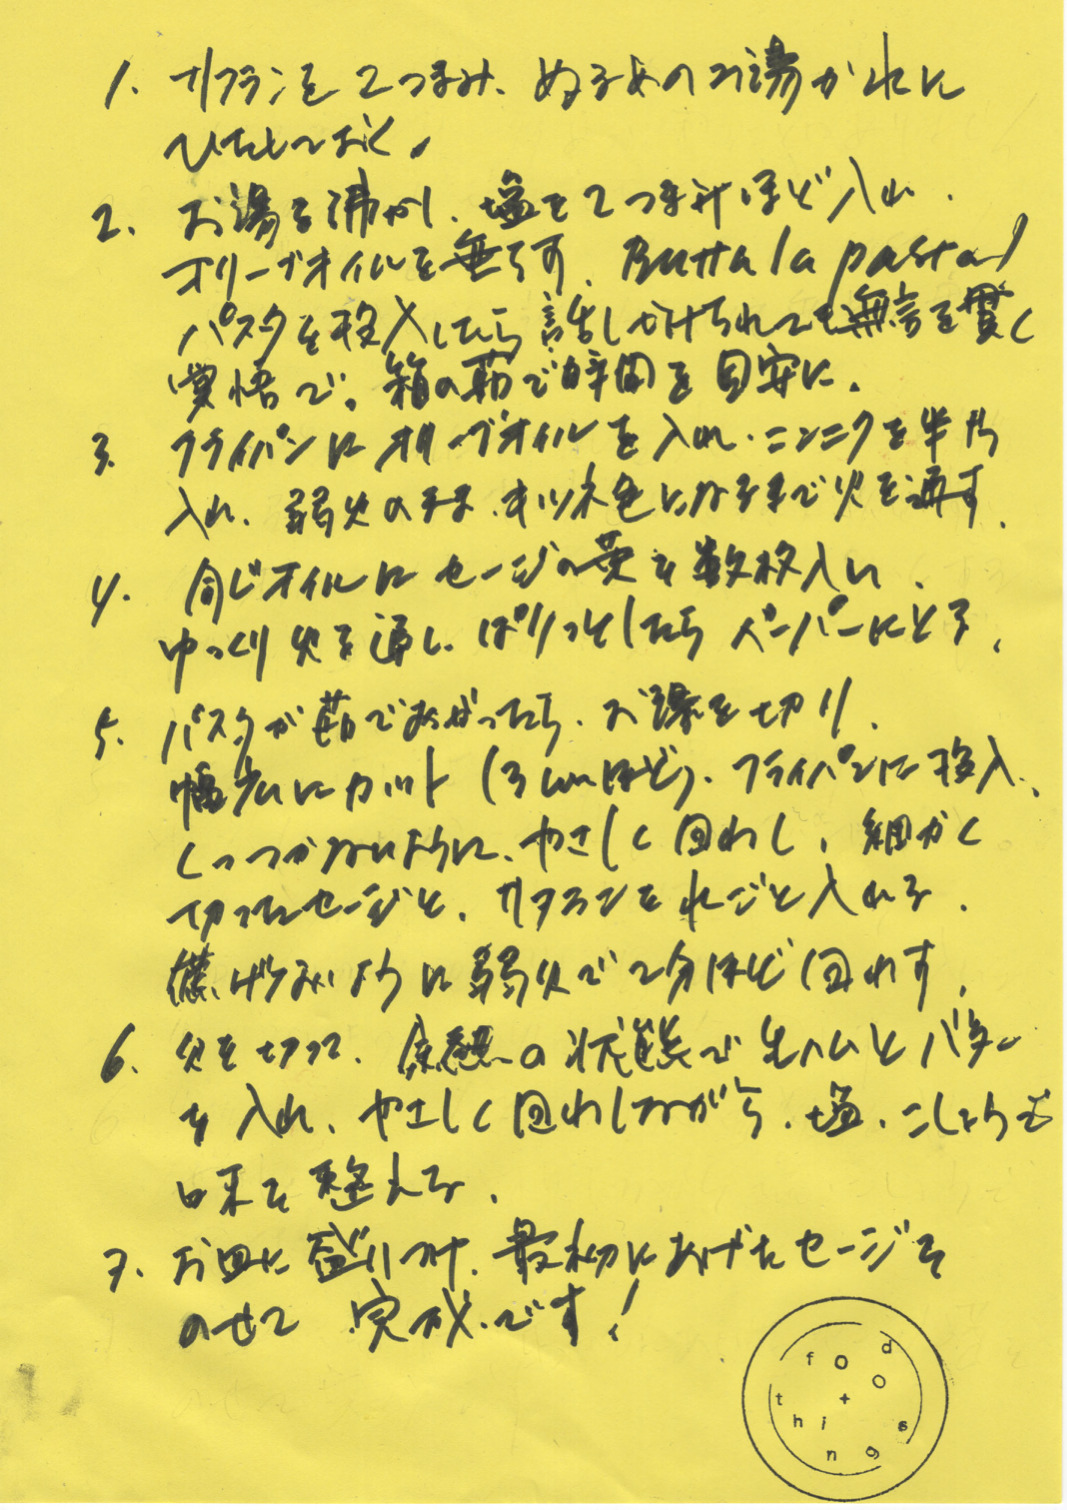 1. サフランを2つまみ、ぬるめのお湯かれに
ひたしておく。
2. お湯を沸かし、塩を2つまみほど入れ、
オリーブオイルを垂らす。Butta la pasta!
パスタを投入したら話しかけられても無言を貫く
覚悟で。箱の茹で時間を目安に。
3. フライパンにオリーブオイルを入れ、ニンニクを半片
入れ、弱火のまま、キツネ色になるまで火を通す。
4. 同じオイルにセージの葉を数枚入れ、
ゆっくり火を通し、ぱりっとしたらペーパーにとる。
5. パスタが茹であがったら、お湯を切り、
幅広にカット(3cmほど)、フライパンに投入、
くっつかないように、やさしく回わし、細かく
切ったセージと、サフランをれごと入れる。
焦げないように弱火で2分ほど回わす。
6. 火を切って、余熱の状態で生ハムとバター
を入れ、やさしく回わしながら、塩、こしょうで
味を整える。
7. お皿に盛りつけ、最初にあげたセージを
のせて 完成です!
food
+
things